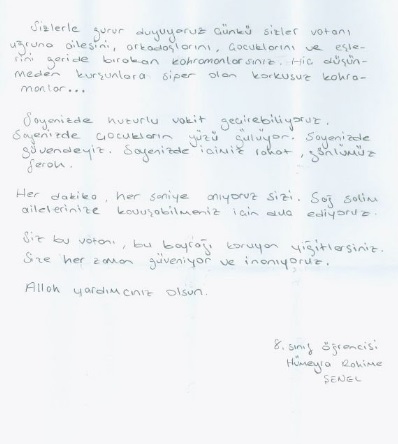 Sizlerle gurur duyuyoruz çünkü sizler vatanı
uğruna ailesini, arkadaşlarını, çocuklarını ve eşle-
rini geride bırakan kahramanlarsınız. Hiç düşün-
meden kurşunlara siper olan korkusuz kahra-
manlar...
Sayenizde huzurlu vakit geçirebiliyoruz.
Sayenizde çocukların yüzü gülüyor. Sayenizde
güvendeyiz. Sayenizde içimiz rahat, gönlümüz
ferah.
Her dakika, her saniye anıyoruz sizi. Sağ salim
ailelerinize kavuşabilmeniz için dua ediyoruz.
Siz bu vatanı, bu bayrağı koruyan yiğitlersiniz.
Size her zaman güveniyor ve inanıyoruz.
Allah yardımcınız olsun.
8. sınıf öğrencisi
Hümeyra Rahime
ŞENEL